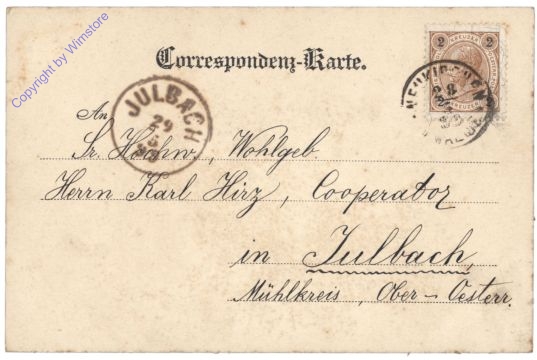 Copyright by Wimstore
Correspondenz-Karte.
2 KREUZER 2
JULBACH
29
5
An
Sr. Hochw., Wohlgeb.
Herrn Karl Hirz, Cooperator
in Julbach,
Mühlkreis, Ober-Oesterr.